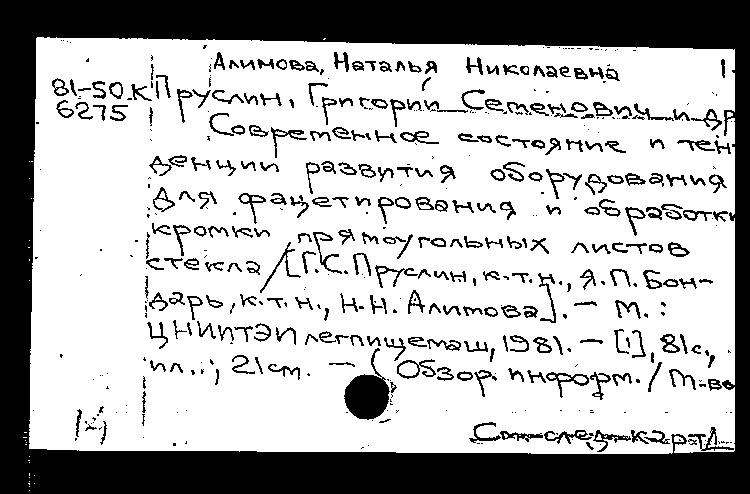 Алимова, Наталья Николаевна 1.
81-50.К Пруслин, Григорий Семенович и др
6275
Современное состояние и тен-
денции развития оборудования
для фацетирования и обработки
кромки прямоугольных листов
стекла / [Г.С. Пруслин, к.т.н., Я.П. Бон-
дарь, к.т.н., Н.Н. Алимова]. — М. :
ЦНИИТЭИлегпищемаш, 1981. — [1], 81с.,
ил.; 21см. — (Обзор. информ. / М-во
См. след. к-я